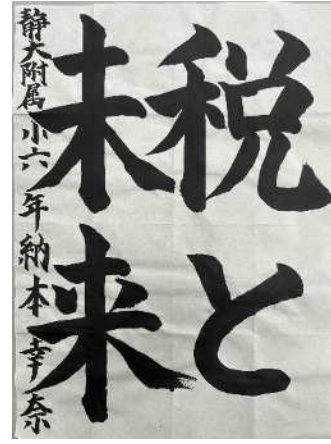 税と
未来
静大附属小六年納本幸奈